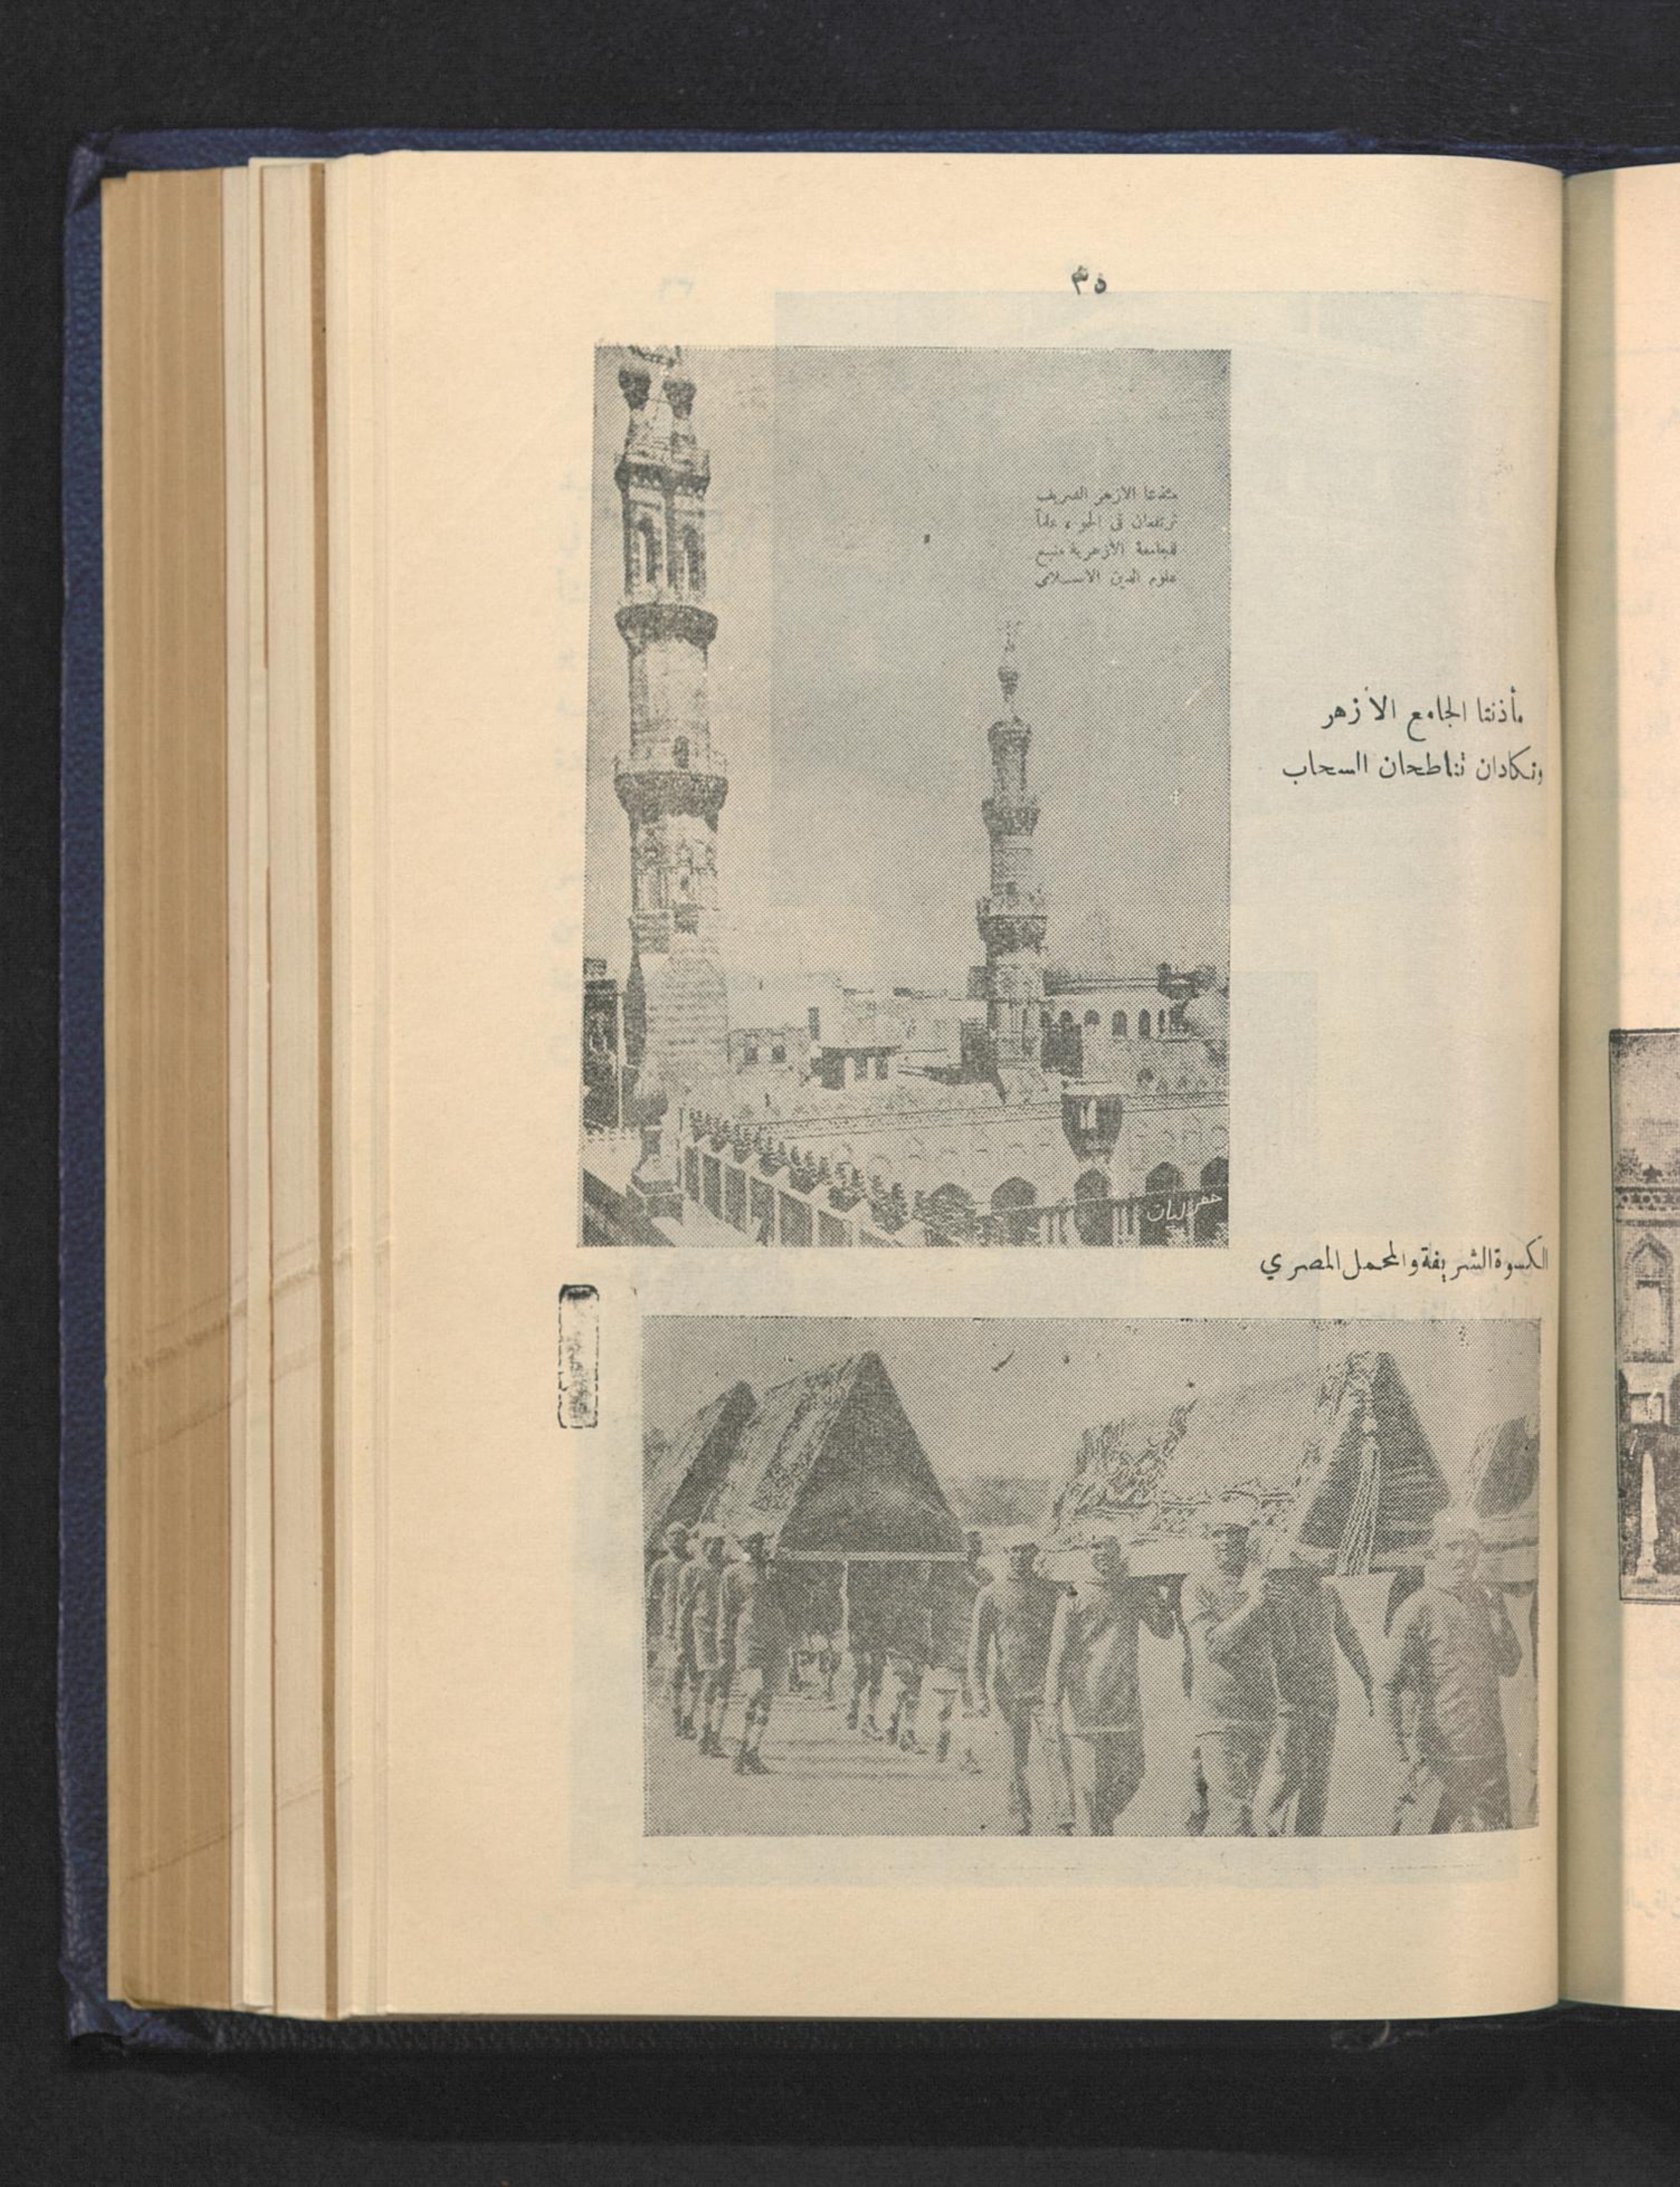 ٣٥
مئذنتا الأزهر الشريف
ترتفعان فى الجو ، علماً
للجامعة الأزهرية منبع
علوم الدين الاسلامى
مأذنتا الجامع الأزهر
وتكادان تناطحان السحاب
الكسوة الشريفة والمحمل المصري